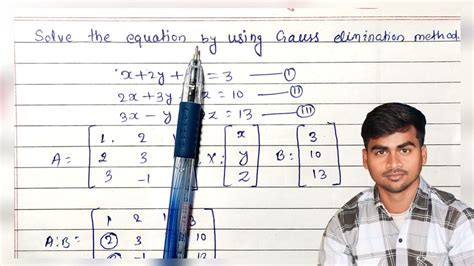 Solve the equation by using Gauss elimination method.
x+2y+ = 3 — (I)
2x+3y z = 10 — (II)
3x - y z = 13 — (III)
A= [1 2
2 3
3 -1 X: [x y z] B: [3 10 13]
A:B= [1 2 3
2 3 10
13